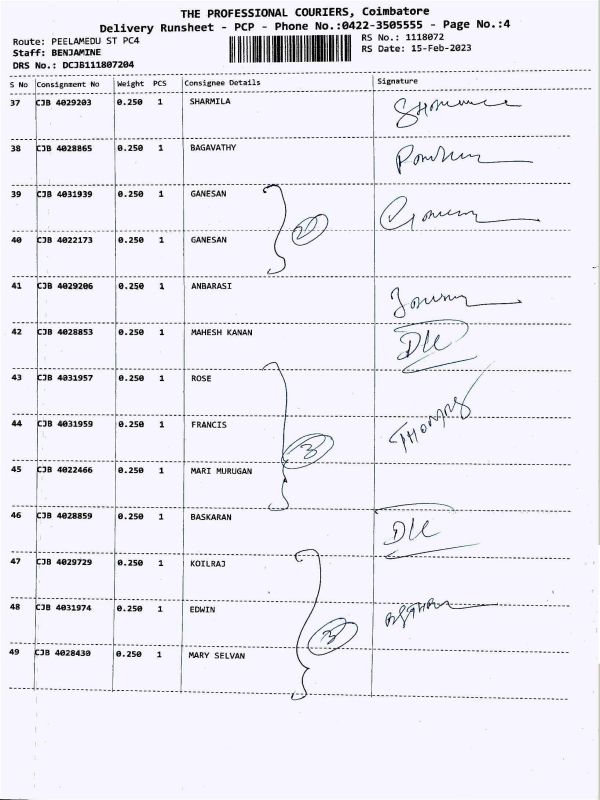 THE PROFESSIONAL COURIERS, Coimbatore
Delivery Runsheet - PCP - Phone No.:0422-3505555 - Page No.:4
Route: PEELAMEDU ST PC4
RS No.: 1118072
Staff: BENJAMINE
RS Date: 15-Feb-2023
DRS No.: DCJB111807204
S No Consignment No Weight PCS Consignee Details Signature
37 CJB 4029203 0.250 1 SHARMILA
38 CJB 4028865 0.250 1 BAGAVATHY
39 CJB 4031939 0.250 1 GANESAN
2
40 CJB 4022173 0.250 1 GANESAN
41 CJB 4029206 0.250 1 ANBARASI
42 CJB 4028853 0.250 1 MAHESH KANAN
43 CJB 4031957 0.250 1 ROSE
44 CJB 4031959 0.250 1 FRANCIS THOMAS
3
45 CJB 4022466 0.250 1 MARI MURUGAN
46 CJB 4028859 0.250 1 BASKARAN
47 CJB 4029729 0.250 1 KOILRAJ
48 CJB 4031974 0.250 1 EDWIN
3
49 CJB 4028430 0.250 1 MARY SELVAN